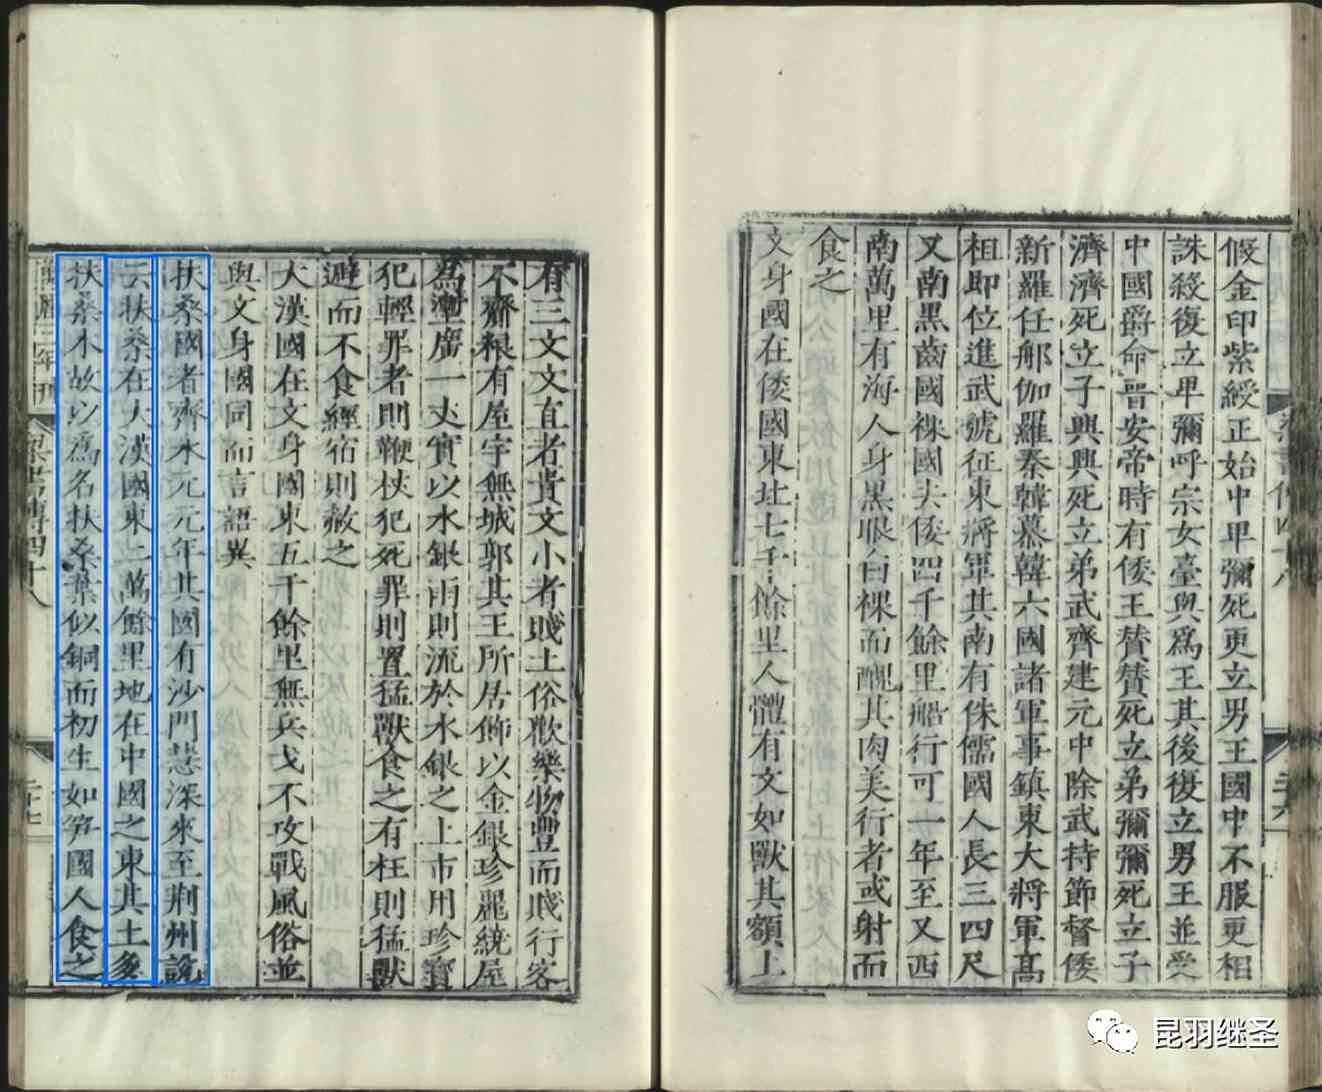 假金印紫綬正始中卑彌死更立男王國中不服更相
誅殺復立卑彌呼宗女臺與爲王其後復立男王並受
中國爵命晉安帝時有倭王賛賛死立弟彌彌死立子
濟濟死立子興興死立弟武齊建元中除武持節督倭
新羅任那伽羅秦韓慕韓六國諸軍事鎮東大將軍髙
祖即位進武號征東將軍其南有侏儒國人長三四尺
又南黑齒國裸國去倭四千餘里船行可一年至又西
南萬里有海人身黑眼白裸而醜其肉美行者或射而
食之
文身國在倭國東北七千餘里人體有文如獸其額上
有三文文直者貴文小者賤土俗歡樂物豐而賤行客
不齎粮有屋宇無城郭其王所居飾以金銀珍麗繞屋
爲壍廣一丈實以水銀雨則流於水銀之上市用珍寳
犯輕罪者則鞭杖犯死罪則置猛獸食之有枉則猛獸
避而不食經宿則赦之
大漢國在文身國東五千餘里無兵戈不攻戰風俗並
與文身國同而言語異
扶桑國者齊永元元年其國有沙門慧深來至荆州說
云扶桑在大漢國東二萬餘里地在中國之東其土多
扶桑木故以爲名扶桑葉似銅而初生如笋國人食之
梁書傳四十八
昆羽继圣